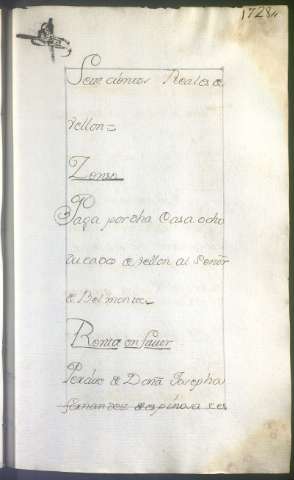 1728
Seiscientos Reales de
vellon=
Zensso
Paga por dha Casa ocho
ducados de vellon al Señor
de Belmonte
Renta en favor
Perdio de Dona Josepha
fernandez de espinosa es